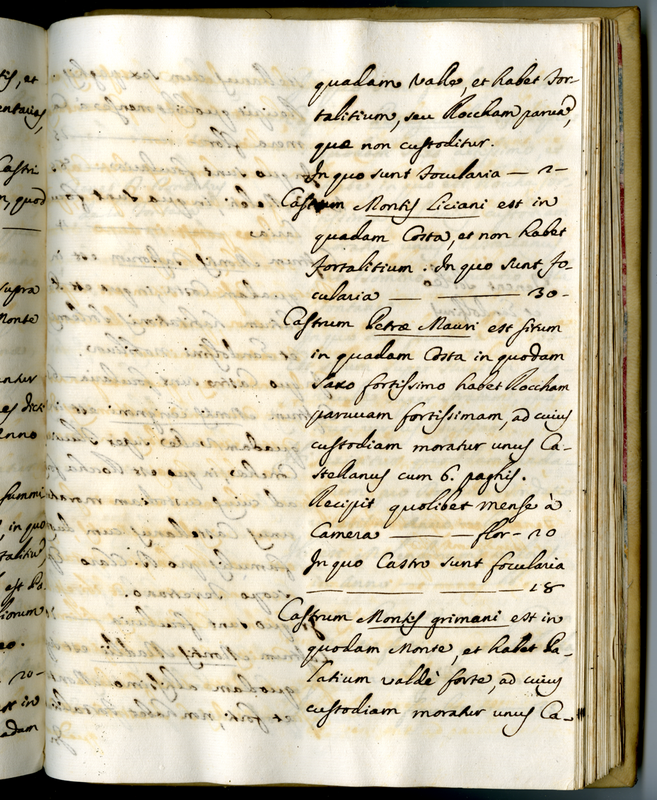 tis, et
entarias,
Castri
n, quod
supra
Monte
untur
es dicti
Anno
summi
, in quo
talitiu
est Pa-
iorum
eo.
20-
est in
adam
quadam valle, et habet For-
talitium, seu Roccham parua,
quæ non custoditur.
In quo sunt Focularia — 2-
Castrum Montis Liciani est in
quadam Costa, et non habet
Fortalitium. In quo sunt fo-
cularia — — 30-
Castrum Petræ Mauri est situm
in quadam Costa in quodam
Saxo fortissimo habet Roccham
paruuam fortissimam, ad cuius
custodiam moratur unus Ca-
stellanus cum 6. paghis.
Recipit quolibet mense à
Camera — — flor- 20
In quo Castro sunt focularia
— — — 18
Castrum Montis grimani est in
quodam Monte, et habet Pa-
latium valdè forte, ad cuius
custodiam moratur unus Ca-